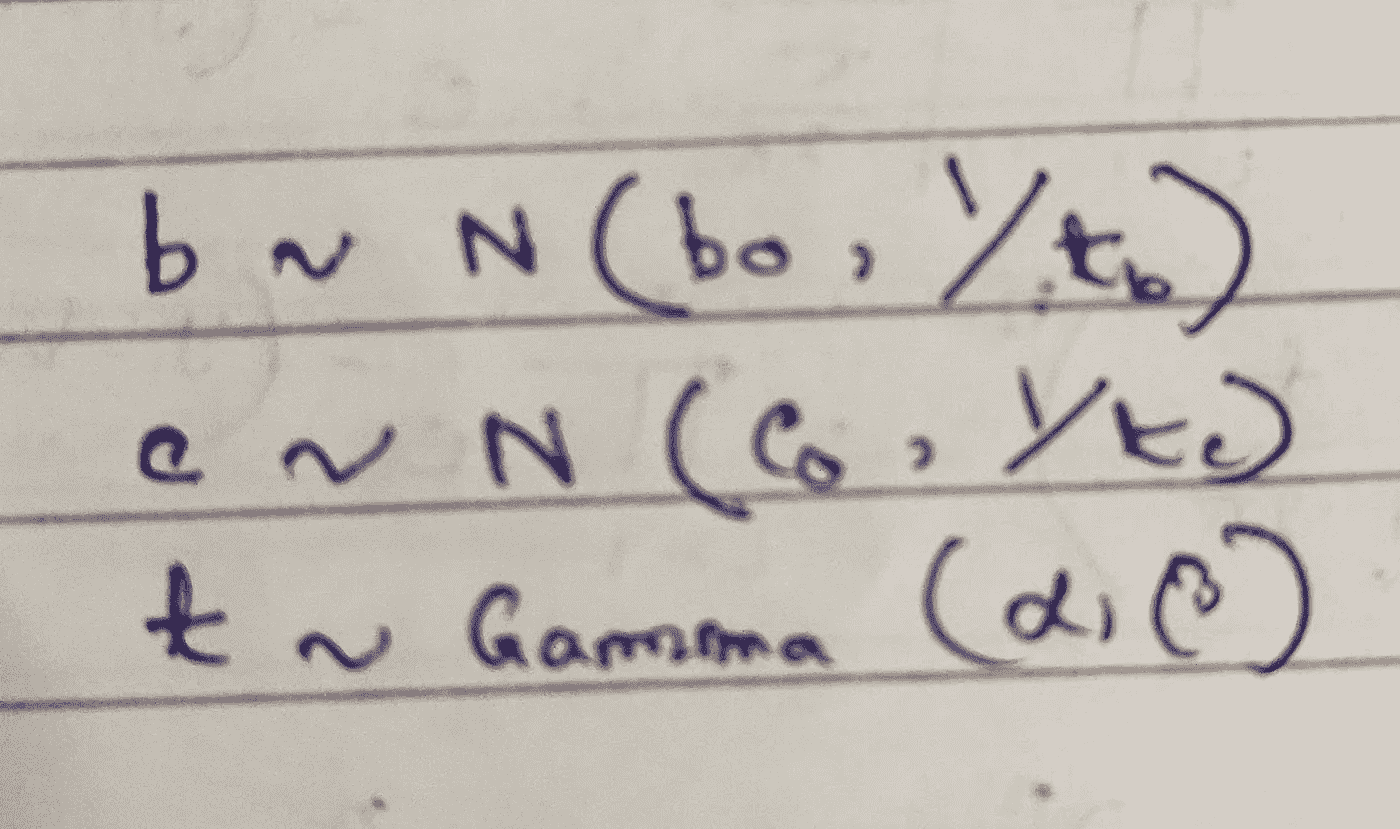 b ~ N (b0, 1/t_b)
c ~ N (c0, 1/t_c)
t ~ Gamma (α, β)